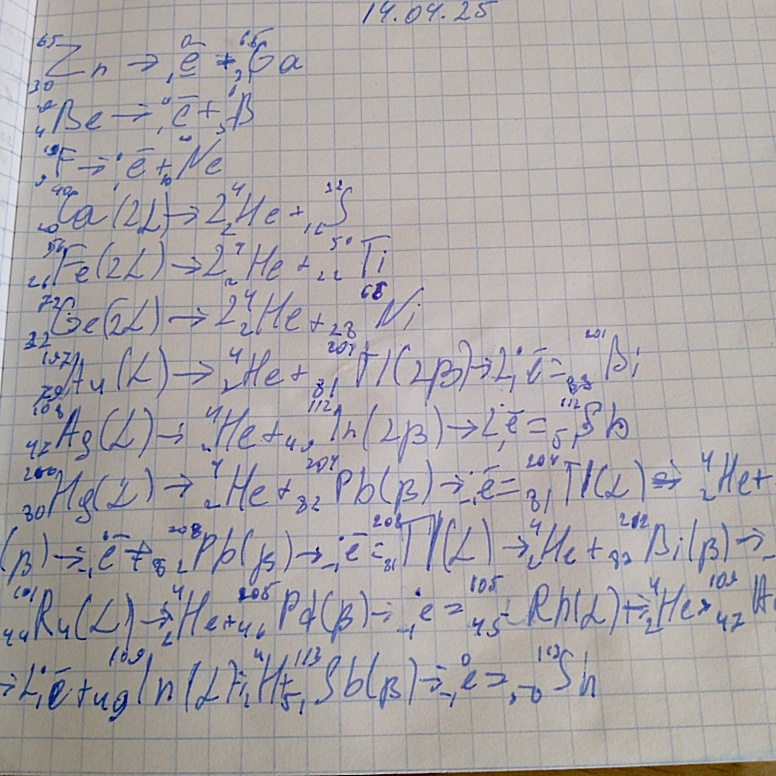 14.04.25
⁶⁵₃₀Zn → ⁰₋₁ē + ⁶⁵₃₁Ga
₄Be → ⁰₋₁ē + ₅B
¹⁹₉F → ⁰₋₁ē + ₁₀Ne
⁴⁰₂₀Ca(2α) → 2⁴₂He + ³²₁₆S
⁵⁶₂₆Fe(2α) → 2⁴₂He + ⁵⁰₂₂Ti
⁷²₃₂Ge(2α) → 2⁴₂He + ⁶⁸₂₈Ni
¹⁹⁷₇₉Au(α) → ⁴₂He + ²⁰¹₈₁Tl(2β) → 2⁰₋₁ē = ²⁰¹₈₃Bi
¹⁰⁸₄₇Ag(α) → ⁴₂He + ¹¹²₄₉In(2β) → 2⁰₋₁ē = ¹¹²₅₁Sb
²⁰⁰₈₀Hg(α) → ⁴₂He + ²⁰⁴₈₂Pb(β) → ₋₁ē = ²⁰⁴₈₁Tl(α) → ⁴₂He +
(β) → ⁰₋₁ē + ²⁰⁸₈₂Pb(β) → ₋₁ē = ²⁰⁸₈₁Tl(α) → ⁴₂He + ²¹²₈₃Bi(β) →
¹⁰¹₄₄Ru(α) → ⁴₂He + ¹⁰⁵₄₆Pd(β) → ⁰₋₁e = ¹⁰⁵₄₅Rh(α) → ⁴₂He + ¹⁰⁹₄₇A
→ 2⁰₋₁ē + ¹⁰⁹₄₉In(α) → ⁴₂H + ¹¹³₅₁Sb(β) → ⁰₋₁e = ¹¹³₅₀Sn